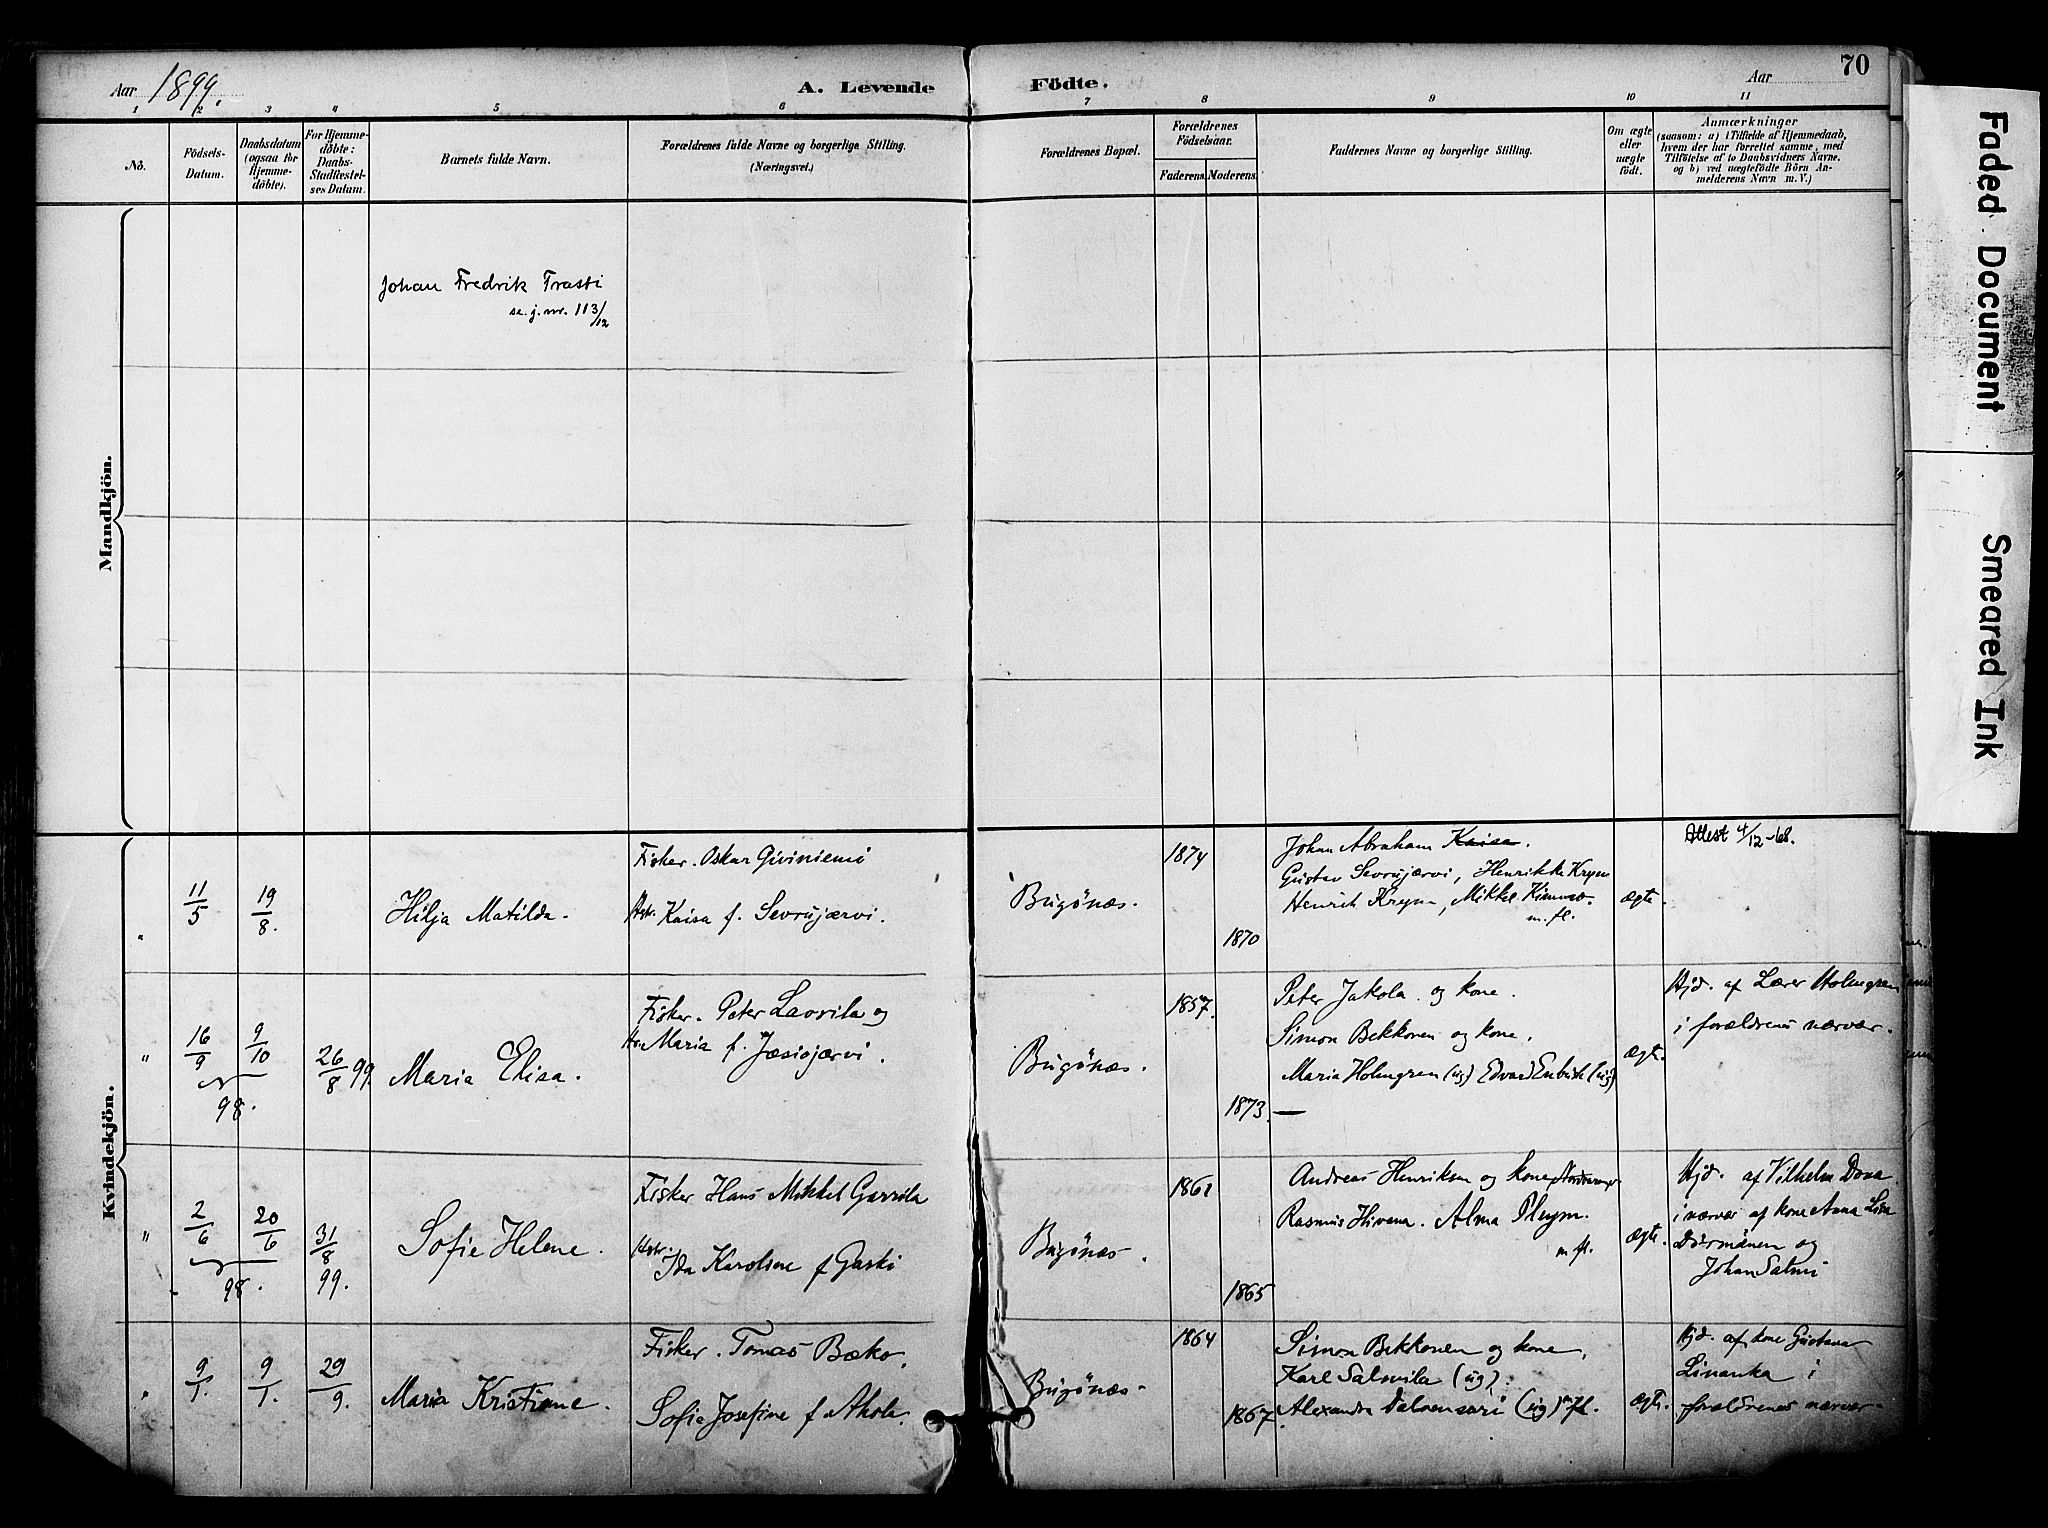 Aar 1899.
A. Levende Födte.
Aar
70
1 2 3 4 5 6 7 8 9 10 11
No.
Födsels-
Datum.
Daabsdatum
(ogsaa for
Hjemme-
döbte).
For Hjemme-
döbte:
Daabs-
Stadfæstel-
ses Datum.
Barnets fulde Navn.
Forældrenes fulde Navne og borgerlige Stilling.
(Næringsvei.)
Forældrenes Bopæl.
Forældrenes
Födselsaar.
Faderens. Moderens.
Faddernes Navne og borgerlige Stilling.
Om ægte
eller
uægte
født.
Anmærkninger
(saasom: a) i Tilfælde af Hjemmedaab,
hvem der har forrettet samme, med
Tilföielse af to Daabsvidners Navne,
og b) ved uægtefödte Börn An-
melderens Navn m. V.)
Mandkjön.
Johan Fredrik Trasti
se. j. nr. 113/12
Kvindekjön.
"
11/5
19/8.
Hilja Matilda.
Fisker. Oskar Giviniemi
Hstr. Kaisa f. Sevrujærvi.
Bugönæs.
1874
1870
Johan Abraham Kaisa.
Gustav Sevrujærvi, Henrikke Krym
Henrik Krym, Mikkel
m. fl.
ægte.
Attest 4/12-68.
"
16/9
9/10
98.
26/8 99
Maria Elisa.
Fisker. Peter Lavrila og
Maria f. Jæsiöjærvi.
Bugönæs.
1857.
1873.
Peter Jakola og kone.
Simon Bekkonen og kone.
Maria Holmgren (ug) Edvard Enbusk (ug)
—
ægte.
Hjd. af Lærer Holmgren
i forældrenes nærvær.
"
2/6
20/6
98.
31/8
99.
Sofie Helene.
Fisker Hans Mikkel Gavrila
Hstr.
Ida Karoline f Gaski
Bugönæs.
1861
1865
Andreas Henriksen og kone
Rasmus Hivena. Alma Pleym.
m fl.
ægte.
Hjd. af Vilhelm Dona
i nærvær af kone Anna Lisa
Dörmänen og
Johan Salmi
"
9/1.
9/1.
29/9.
Maria Kristiane.
Fisker. Tomas Bæko.
Sofia Josefine f Ahola.
Bugönæs.
1864
1867.
Simon Bekkonen og kone,
Karl Salmila (ug).
Alexandra Palvensari (ug) m fl.
ægte.
Hjd. af kone Gustava
Linanka i
forældrenes nærvær.
Faded Document
Smeared Ink